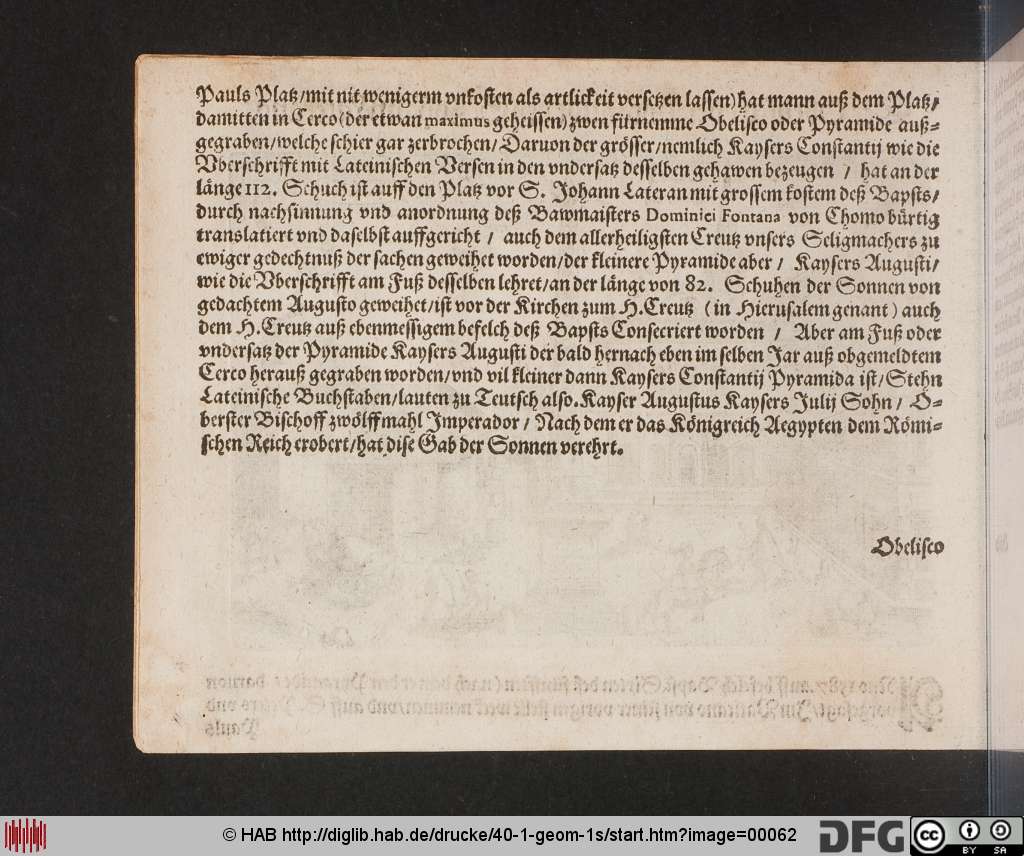 Pauls Platz/mit nit wenigerm vnkosten als artlickeit versetzen lassen) hat mann auß dem Platz/
damitten in Cerco (der etwan maximus geheissen) zwen fürnemme Obelisco oder Pyramide auß-
gegraben/welche schier gar zerbrochen/Daruon der grösser/nemlich Kaysers Constantij wie die
Vberschrifft mit Lateinischen Versen in den vndersatz desselben gehawen bezeugen / hat an der
länge 112. Schuch ist auff den Platz vor S. Johann Lateran mit grossem kostem deß Bapsts/
durch nachsinnung vnd anordnung deß Bawmaisters Dominici Fontana von Chomo bürtig
translatiert vnd daselbst auffgericht / auch dem allerheiligsten Creutz vnsers Seligmachers zu
ewiger gedechtnuß der sachen geweihet worden/der kleinere Pyramide aber / Kaysers Augusti/
wie die Vberschrifft am Fuß desselben lehret/an der länge von 82. Schuhen der Sonnen von
gedachtem Augusto geweihet/ist vor der Kirchen zum H.Creutz (in Hierusalem genant) auch
dem H.Creutz auß ebenmessigem befelch deß Bapsts Consecriert worden / Aber am Fuß oder
vndersatz der Pyramide Kaysers Augusti der bald hernach eben im selben Jar auß obgemeldtem
Cerco herauß gegraben worden/vnd vil kleiner dann Kaysers Constantij Pyramida ist/Stehn
Lateinische Buchstaben/lauten zu Teutsch also. Kayser Augustus Kaysers Julij Sohn / O-
berster Bischoff zwölffmahl Imperador / Nach dem er das Königreich Aegypten dem Römi-
schen Reich erobert/hat dise Gab der Sonnen verehrt.
Obelisco
© HAB http://diglib.hab.de/drucke/40-1-geom-1s/start.htm?image=00062
DFG
cc BY SA